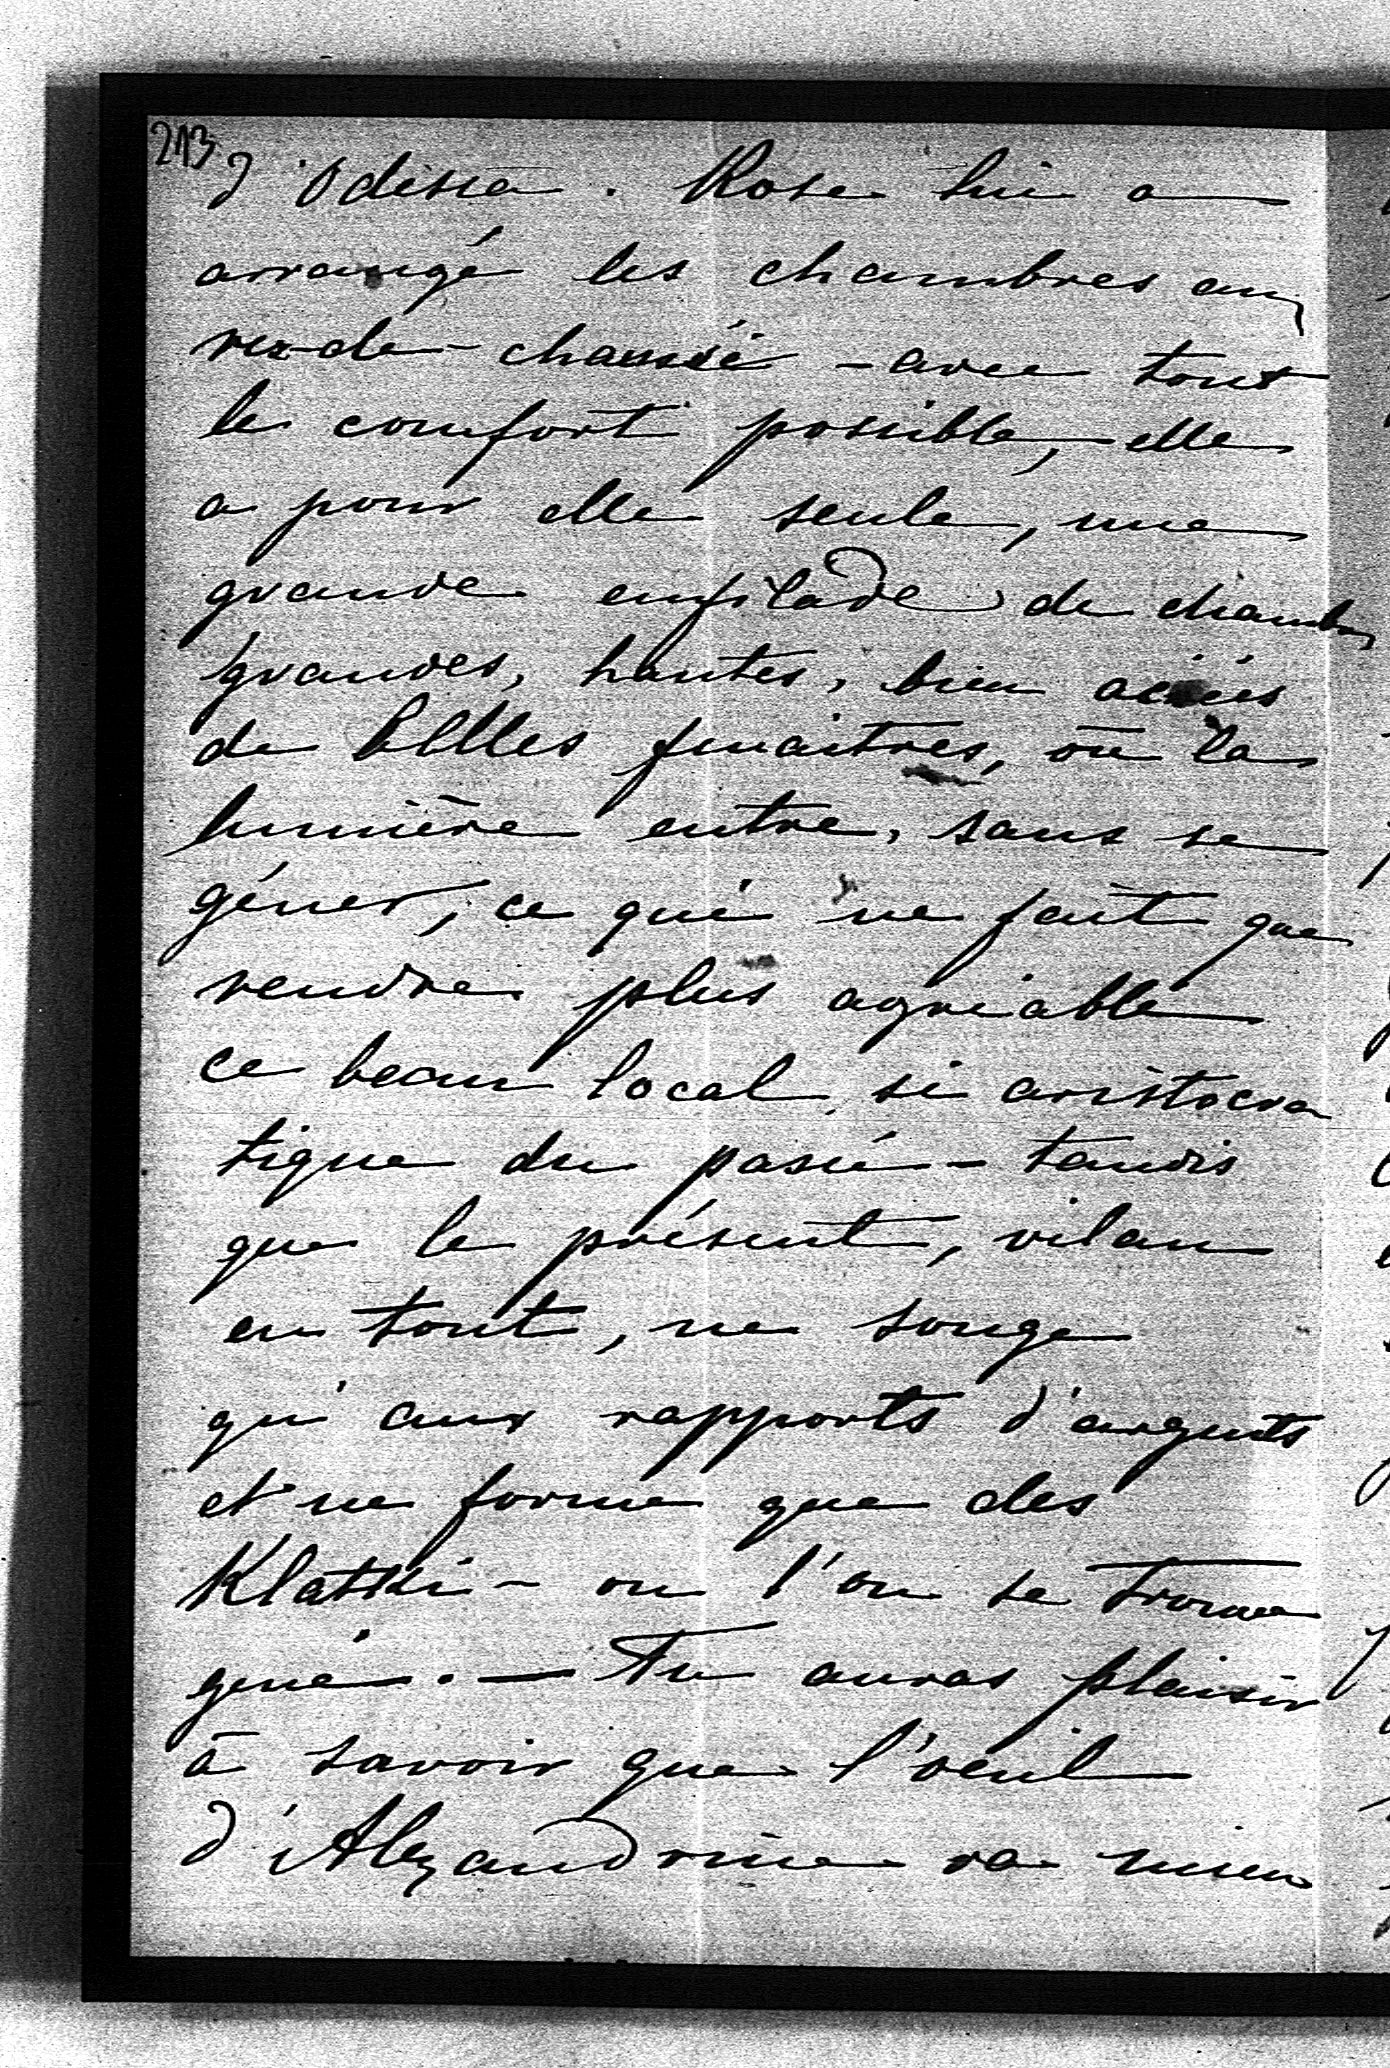 213
d'Odessa. Rose lui a
arrangé les chambres au
rez-de-chaussé - avec tout
le comfort possible, elle
a pour elle seule, une
grande enfilade de chambres
grandes, hautes, bien aérés
de belles fenaitres, où la
lumière entre, sans se
géner, ce qui ne fait que
rendre plus agréable
ce beau local si aristocra
tique du passé - tandis
que le présent, vilain
en tout, ne songe
qu'aux rapports d'argents
et ne forme que des
Klatki - ou l'on se trouve
gené. - Tu auras plaisir
à savoir que l'oeuil
d'Alexandrine va mieux